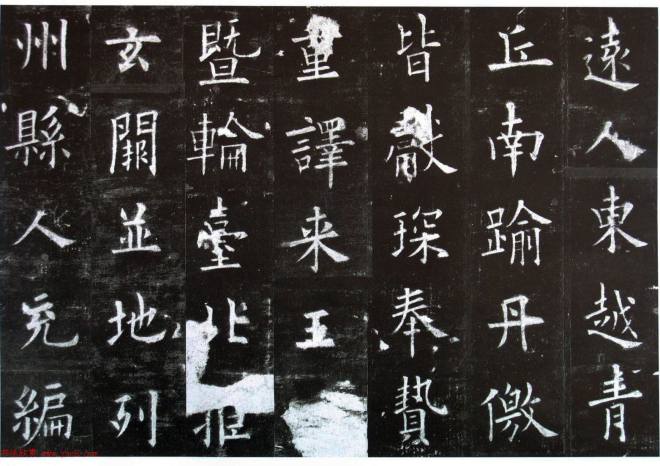 遠人東越青
丘南踰丹儌
皆獻琛奉贄
重譯来王
暨輪臺北拒
玄闕並地列
州縣人充編